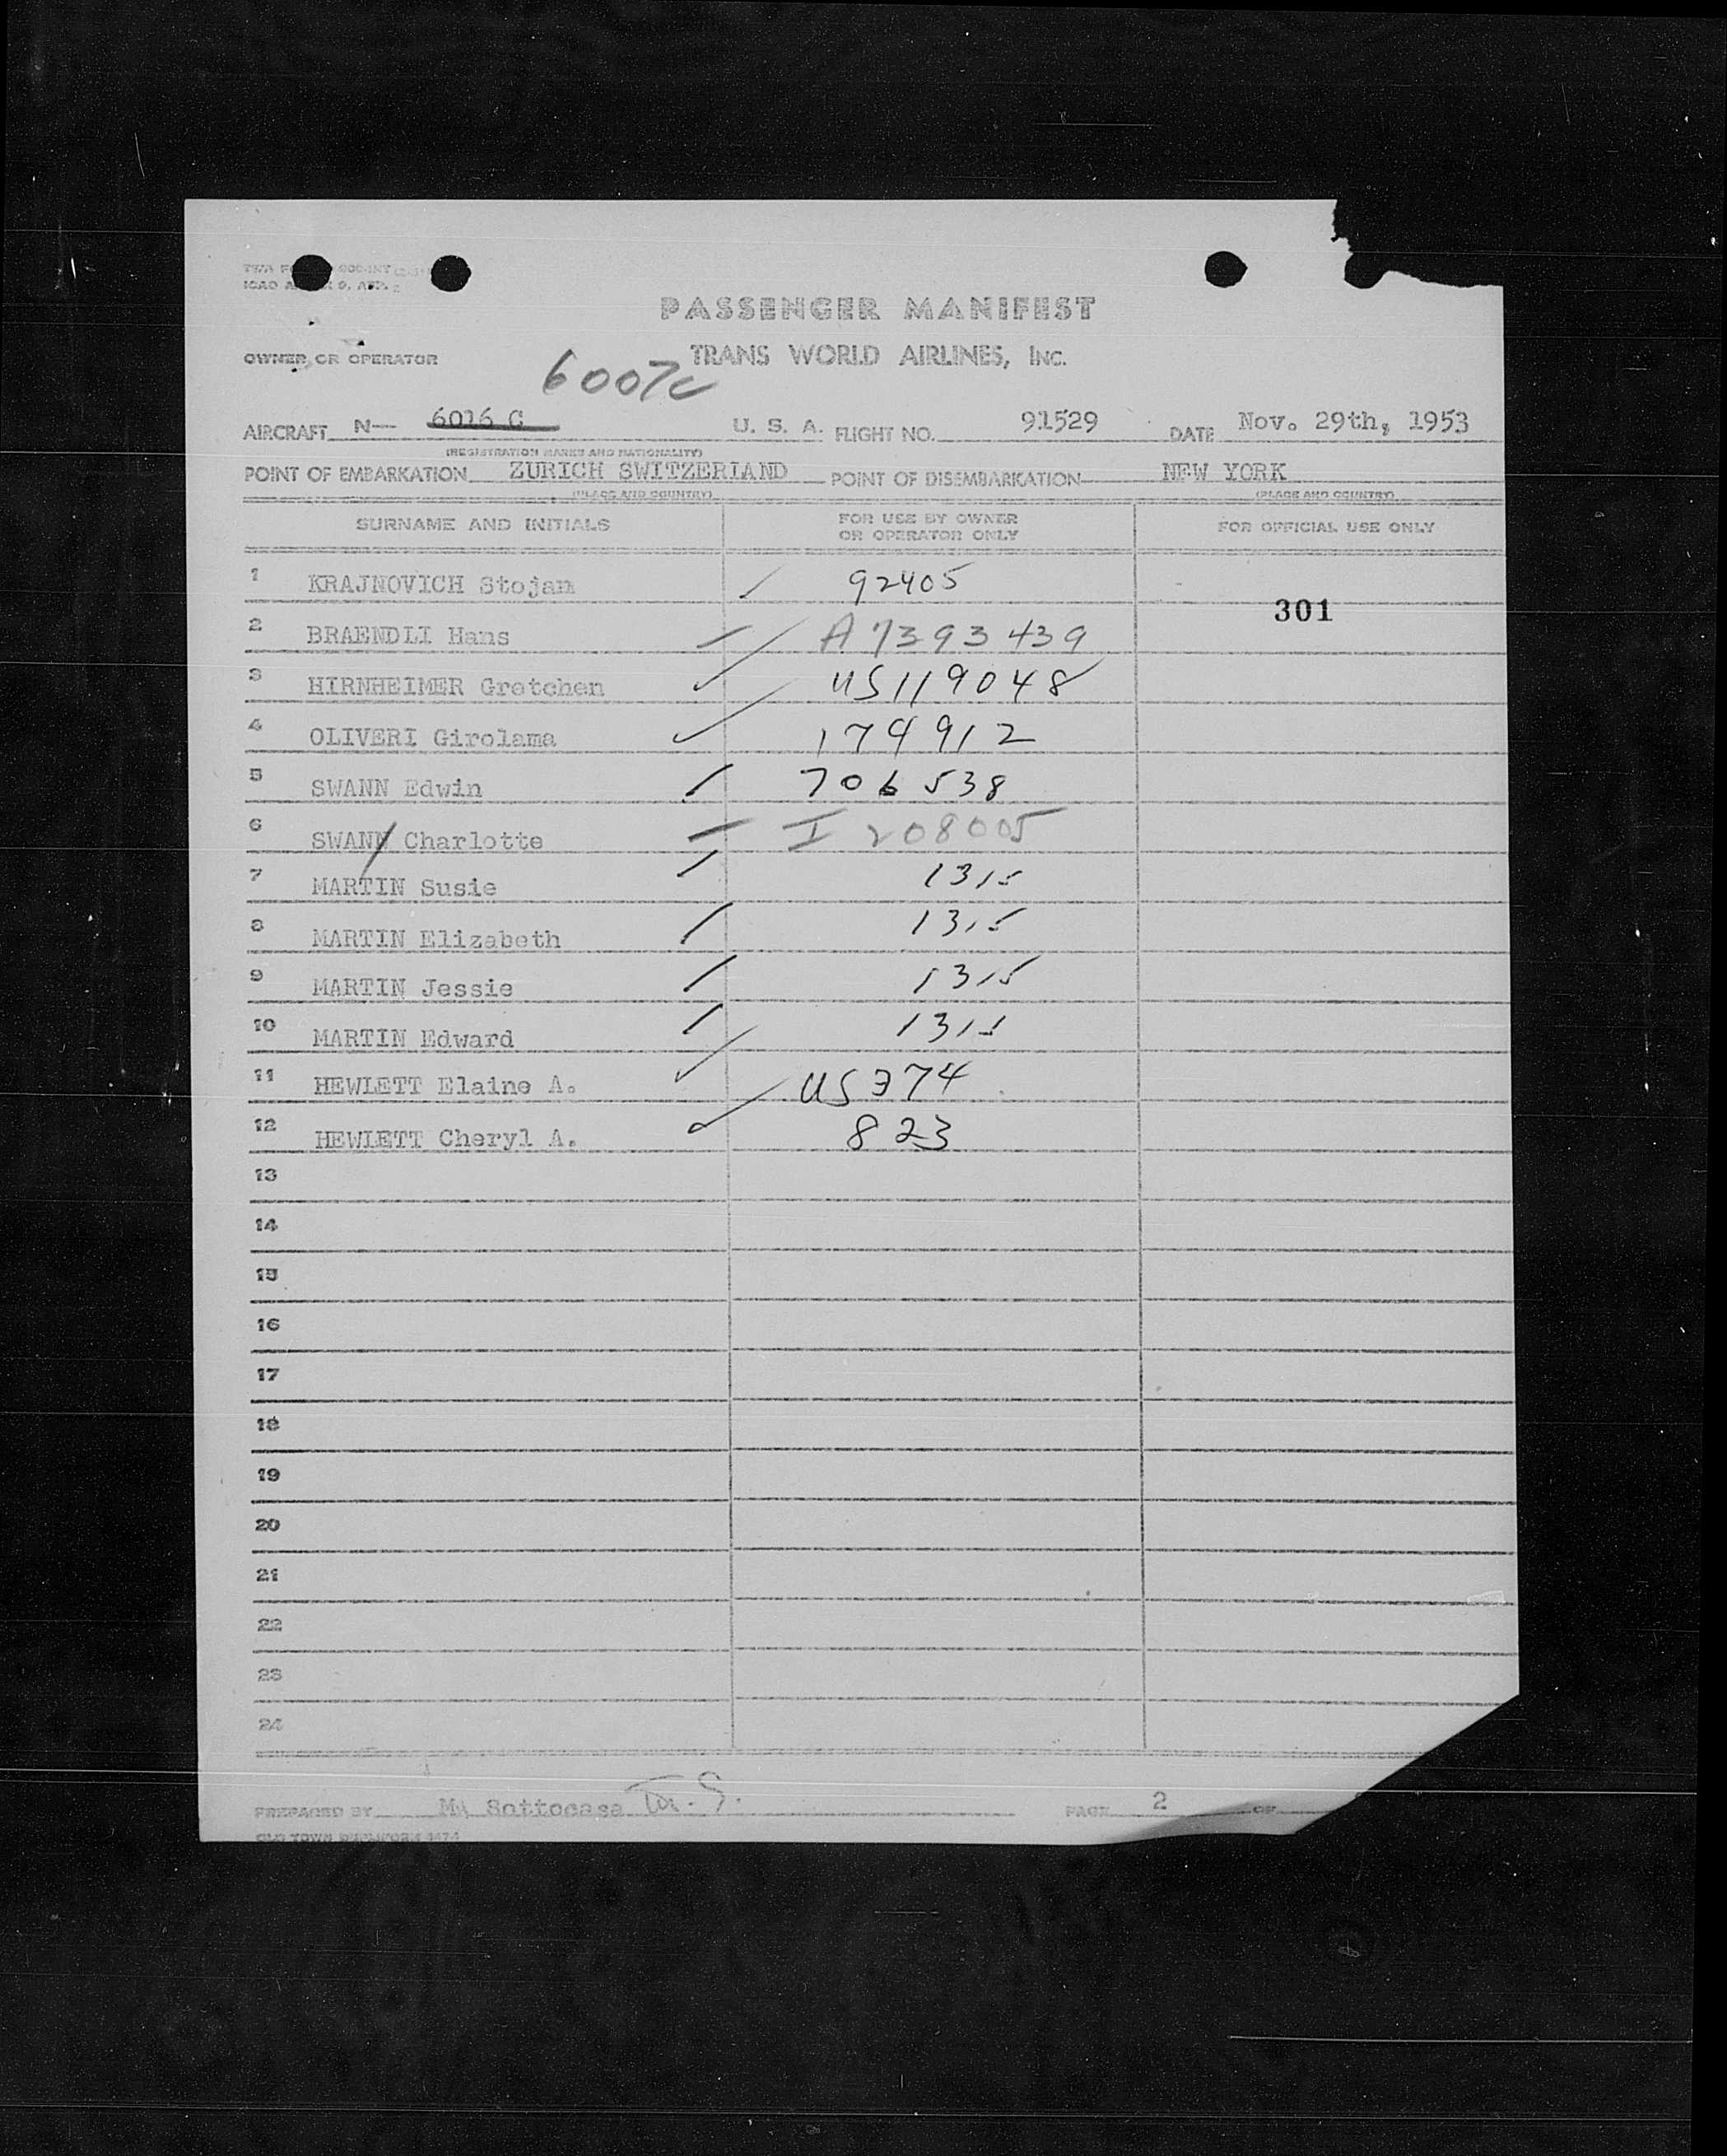 PASSENGER MANIFEST
OWNER OR OPERATOR TRANS WORLD AIRLINES, INC.
6007C
AIRCRAFT N— 6016 C U. S. A. FLIGHT NO. 91529 DATE Nov. 29th, 1953
(REGISTRATION MARKS AND NATIONALITY)
POINT OF EMBARKATION ZURICH SWITZERLAND POINT OF DISEMBARKATION NEW YORK
(PLACE AND COUNTRY) (PLACE AND COUNTRY)
SURNAME AND INITIALS FOR USE BY OWNER OR OPERATOR ONLY FOR OFFICIAL USE ONLY
1 KRAJNOVICH Stojan 92405
301
2 BRAENDLI Hans A7393439
3 HIRNHEIMER Gretchen US119048
4 OLIVERI Girolama 174912
5 SWANN Edwin 706538
6 SWANN Charlotte I 208005
7 MARTIN Susie 1315
8 MARTIN Elizabeth 1315
9 MARTIN Jessie 1315
10 MARTIN Edward 1315
11 HEWLETT Elaine A. US374
12 HEWLETT Cheryl A. 823
13
14
15
16
17
18
19
20
21
22
23
24
PREPARED BY M. Sottocasa PAGE 2 OF
OLD TOWN